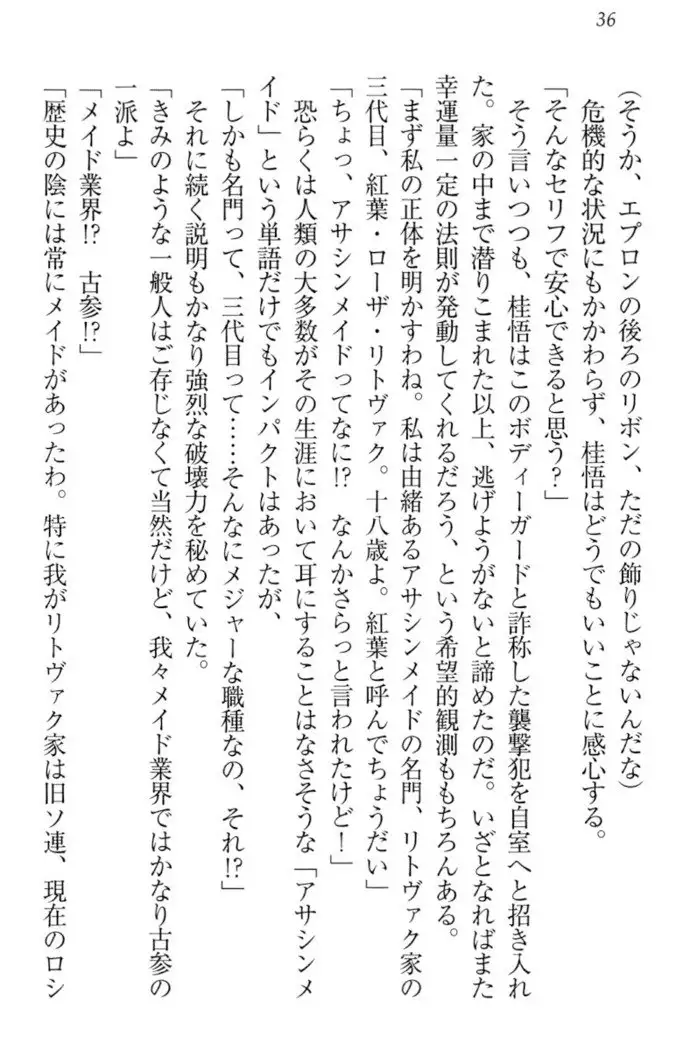 36
(そうか、エプロンの後ろのリボン、ただの飾りじゃないんだな)
危機的な状況にもかかわらず、桂悟はどうでもいいことに感心する。
「そんなセリフで安心できると思う?」
そう言いつつも、桂悟はこのボディーガードと詐称した襲撃犯を自室へと招き入れ
た。家の中まで潜りこまれた以上、逃げようがないと諦めたのだ。いざとなればまた
幸運量一定の法則が発動してくれるだろう、という希望的観測ももちろんある。
「まず私の正体を明かすわね。私は由緒あるアサシンメイドの名門、リトヴァク家の
三代目、紅葉・ローザ・リトヴァク。十八歳よ。紅葉と呼んでちょうだい」
「ちょっ、アサシンメイドってなに!? なんかさらっと言われたけど!」
恐らくは人類の大多数がその生涯において耳にすることはなさそうな「アサシンメ
イド」という単語だけでもインパクトはあったが、
「しかも名門って、三代目って……そんなにメジャーな職種なの、それ!?」
それに続く説明もかなり強烈な破壊力を秘めていた。
「きみのような一般人はご存じなくて当然だけど、我々メイド業界ではかなり古参の
一派よ」
「メイド業界!? 古参!?」
「歴史の陰には常にメイドがあったわ。特に我がリトヴァク家は旧ソ連、現在のロシ